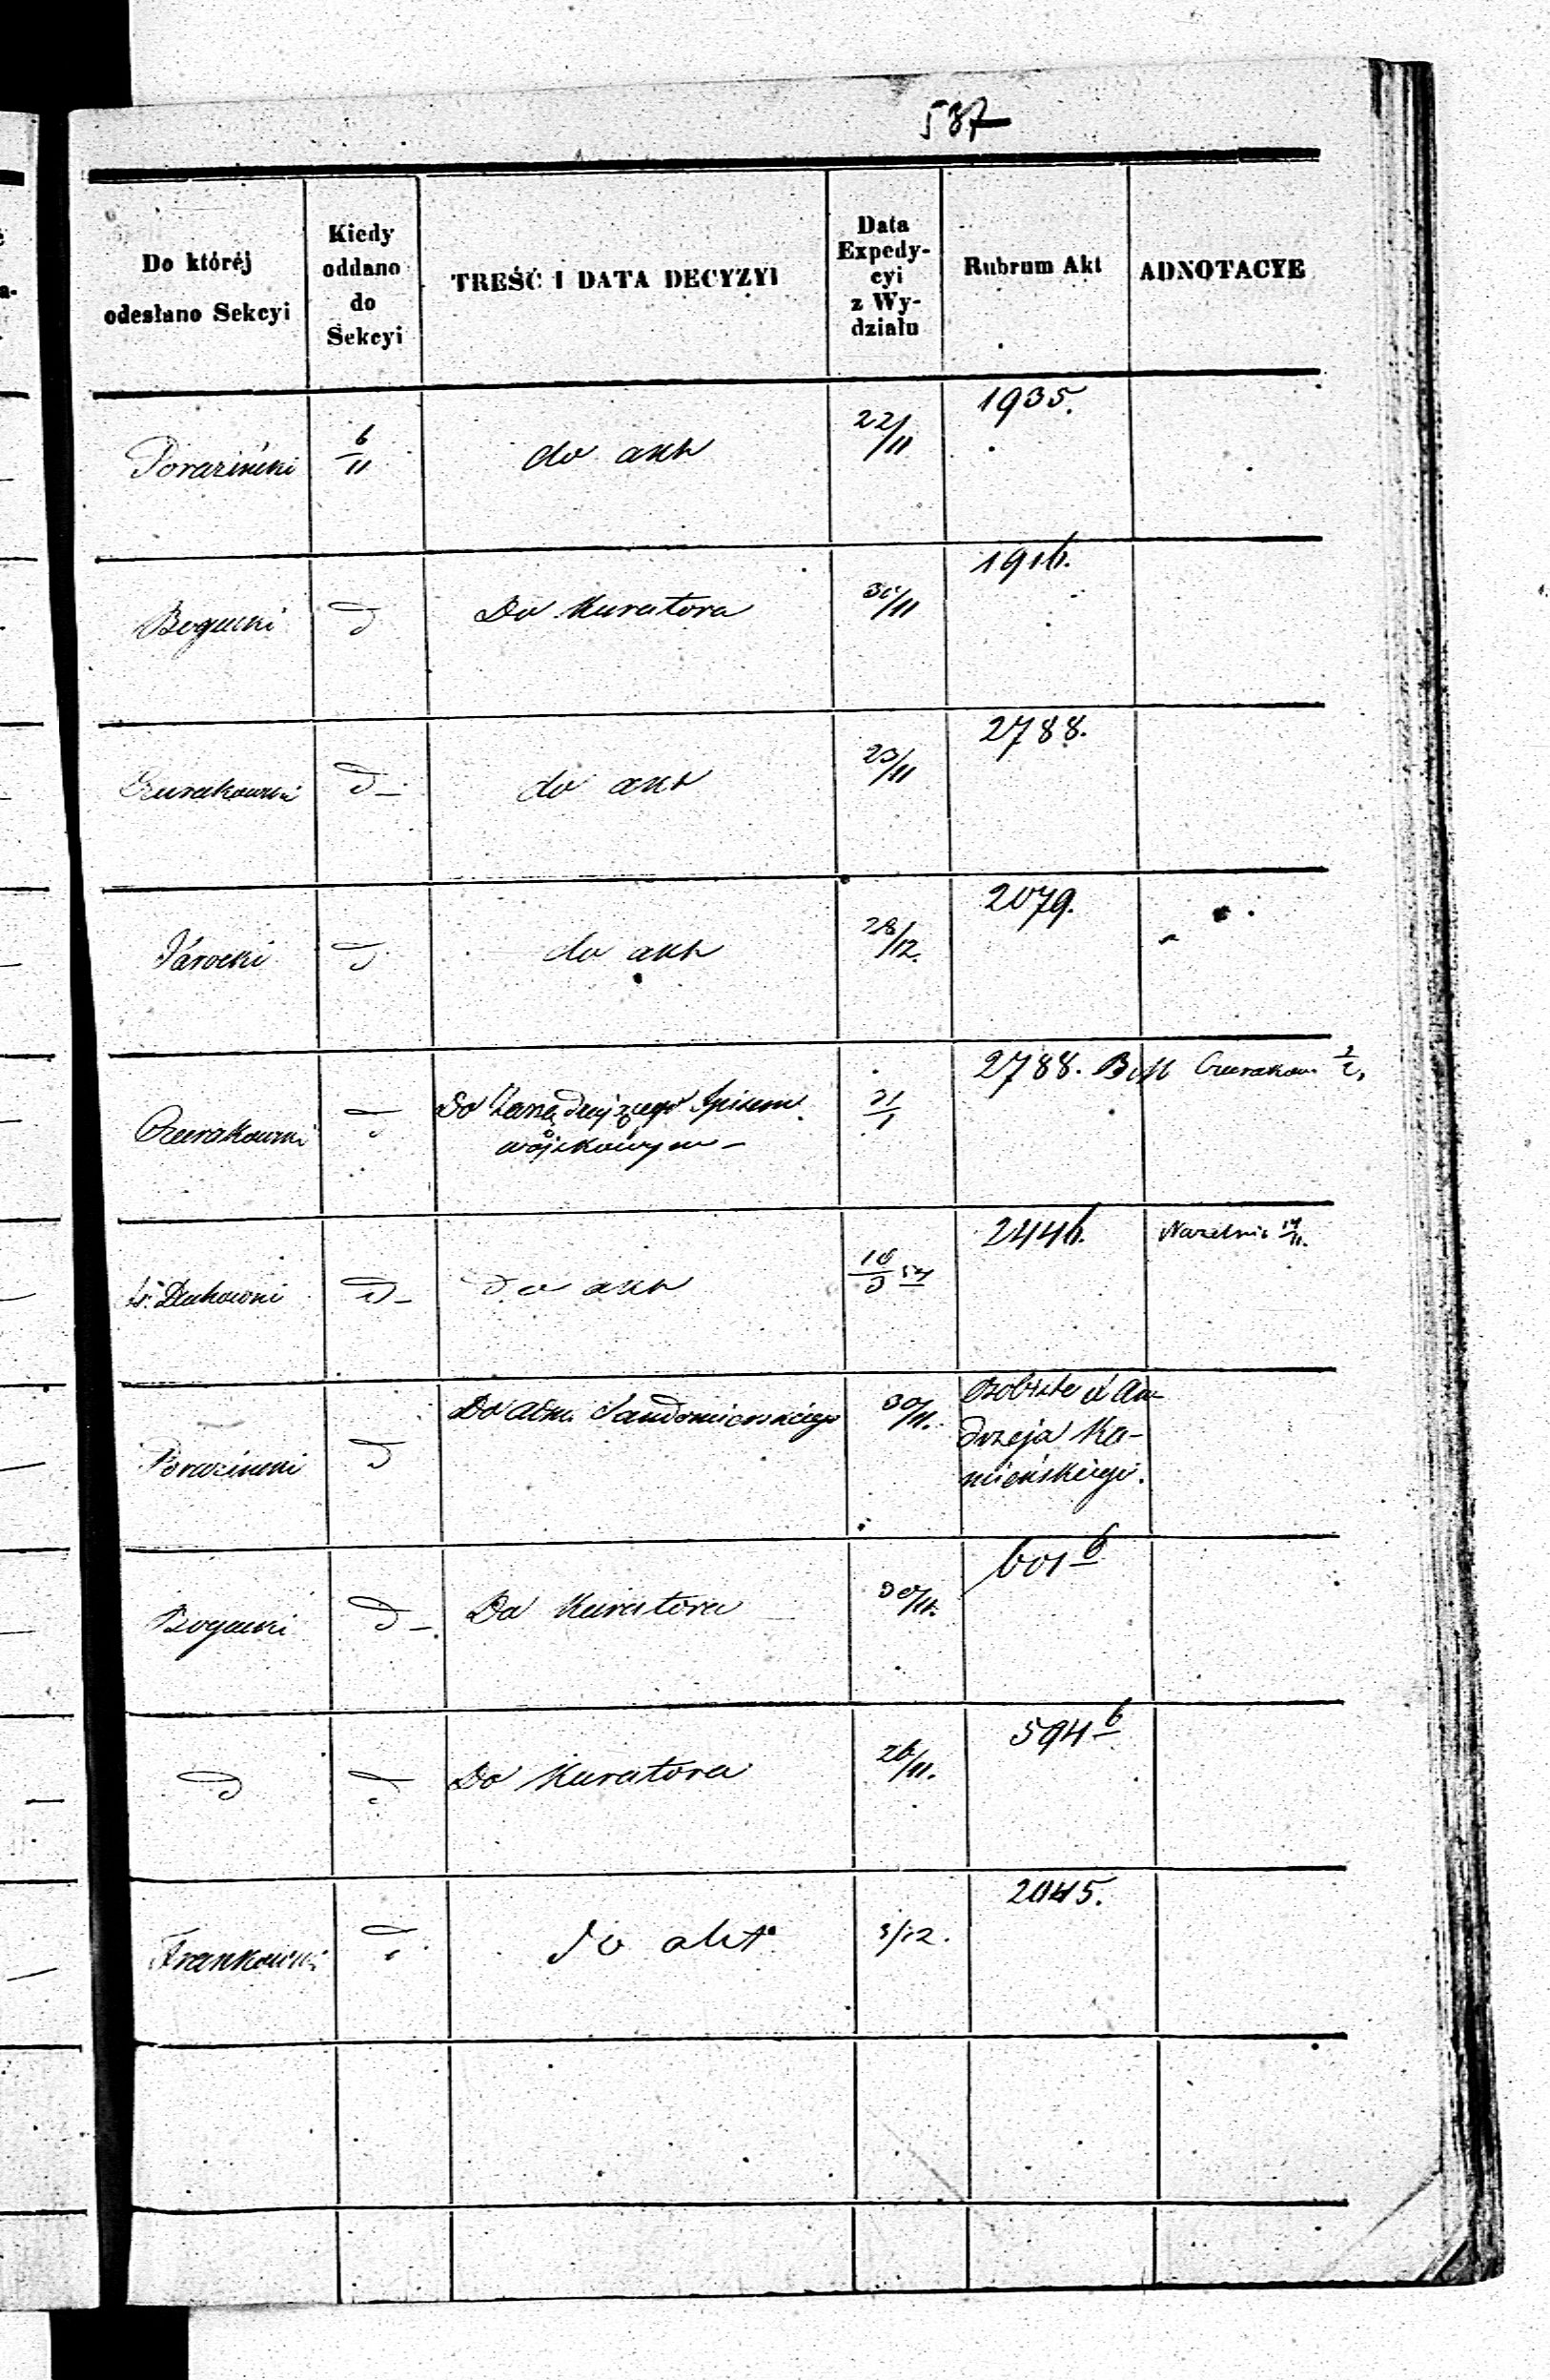 587
Do któréj odesłano Sekcyi | Kiedy oddano do Sekcyi | TREŚĆ I DATA DECYZYI | Data Expedycyi z Wydziału | Rubrum Akt | ADNOTACYE
Poraziński | 6/11 | do akt | 22/11 | 1935.
Bogucki | d | Do Kuratora | 30/11 | 1916.
Czurakowski | d – | do akt | 23/11 | 2788.
Jarocki | d | do akt | 28/12. | 2079.
Czurakowski | d | Do Zarządzającego Spisem
wojskowym – | 21/1 | 2788. Bis | Czurakow.
Duchowni | d – | do akt | 10/3 54 | 2446. | Naczelnik 14/11.
Poraziński | d | Do Adm. Sandomierskiego | 30/11. | Osobiste X An-
drzeja Ka-
mieńskiego.
Bogucki | d – | Do Kuratora | 30/11. | 601 b
d | d | Do Kuratora | 26/11. | 594 b
Frankowski | d | do akt | 3/12. | 2045.